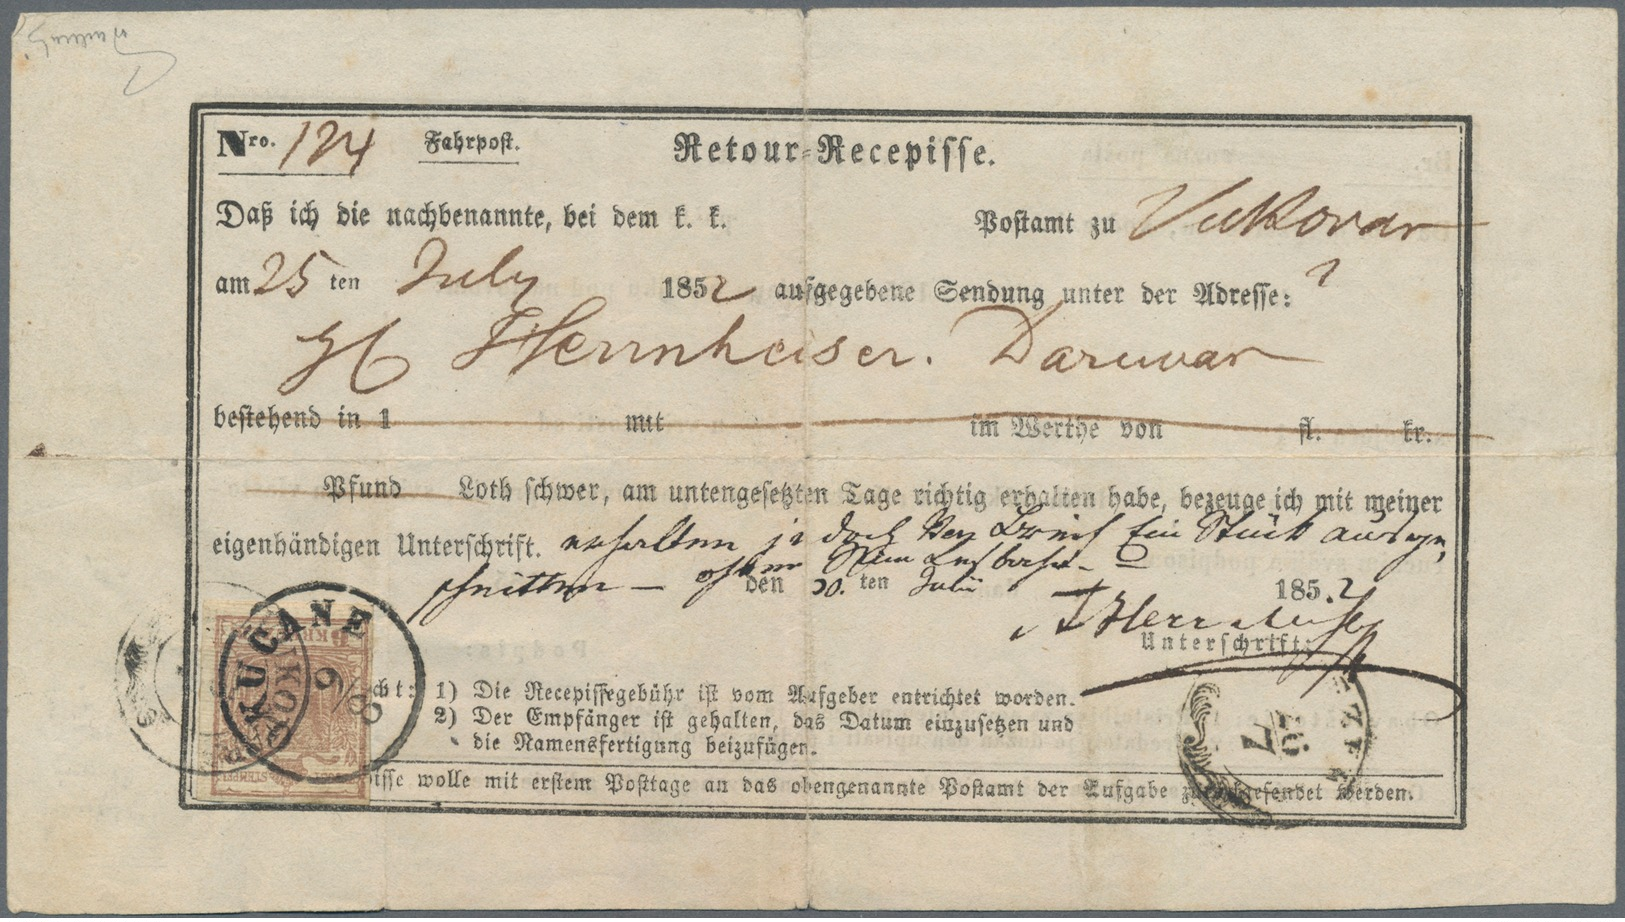 Nro. 124 Fahrpost. Retour-Recepisse.
Daß ich die nachbenannte, bei dem k. k. Postamt zu Vukovar
am 25 ten July 1852 aufgegebene Sendung unter der Adresse:
H Herrnheiser. Daruvar
bestehend in 1 mit im Werthe von fl. kr.
Pfund Loth schwer, am untengesetzten Tage richtig erhalten habe, bezeuge ich mit meiner
eigenhändigen Unterschrift. erhalten jedoch den Brief Ein Stück ausge-
schnitten —
den 30. ten Julii 1852
Unterschrift:
cht: 1) Die Recepissegebühr ist vom Aufgeber entrichtet worden.
2) Der Empfänger ist gehalten, das Datum einzusetzen und
die Namensfertigung beizufügen.
isse wolle mit erstem Posttage an das obengenannte Postamt der Aufgabe zurückgesendet werden.
6 KR
STEMPEL
9/8